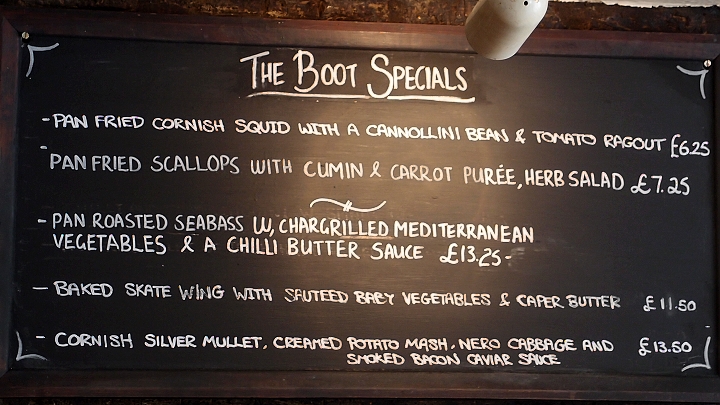 THE BOOT SPECIALS
- PAN FRIED CORNISH SQUID WITH A CANNOLLINI BEAN & TOMATO RAGOUT £6.25
- PAN FRIED SCALLOPS WITH CUMIN & CARROT PURÉE, HERB SALAD £7.25
- PAN ROASTED SEABASS W, CHARGRILLED MEDITERRANEAN
VEGETABLES & A CHILLI BUTTER SAUCE £13.25-
- BAKED SKATE WING WITH SAUTEED BABY VEGETABLES & CAPER BUTTER £11.50
- CORNISH SILVER MULLET, CREAMED POTATO MASH, NERO CABBAGE AND £13.50
SMOKED BACON CAVIAR SAUCE